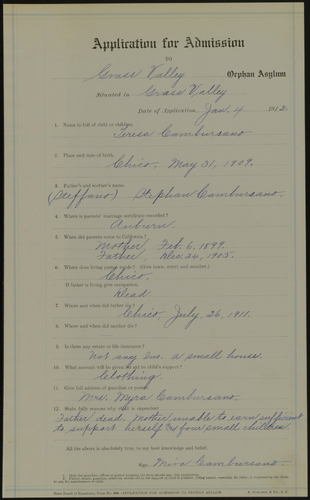 Application for Admission
TO
Grass Valley Orphan Asylum
Situated in Grass Valley
Date of Application, Jan. 4 1912
1. Name in full of child or children.
Teresa Cambursano
2. Place and date of birth.
Chico. May 31, 1909.
3. Father's and mother's name
(Steffano) Stephan Cambursano.
4. Where is parents' marriage certificate recorded?
Auburn.
5. When did parents come to California?
Mother, Feb. 6, 1899.
Father, Dec. 24, 1905.
6. Where does living parent reside? (Give town, street and number)
Chico.
If father is living give occupation.
Dead.
7. Where and when did father die?
Chico, July 26, 1911.
8. Where and when did mother die?
9. Is there any estate or life insurance?
Not any Ins. a small house.
10. What amount will be given toward child's support?
Clothing.
11. Give full address of guardian or parent.
Mrs. Myra Cambursano.
12. State fully reasons why child is dependent.
Father dead. Mother unable to earn sufficient
to support herself & four small children.
All the above is absolutely true, to my best knowledge and belief.
Sign, Mira Cambursano.